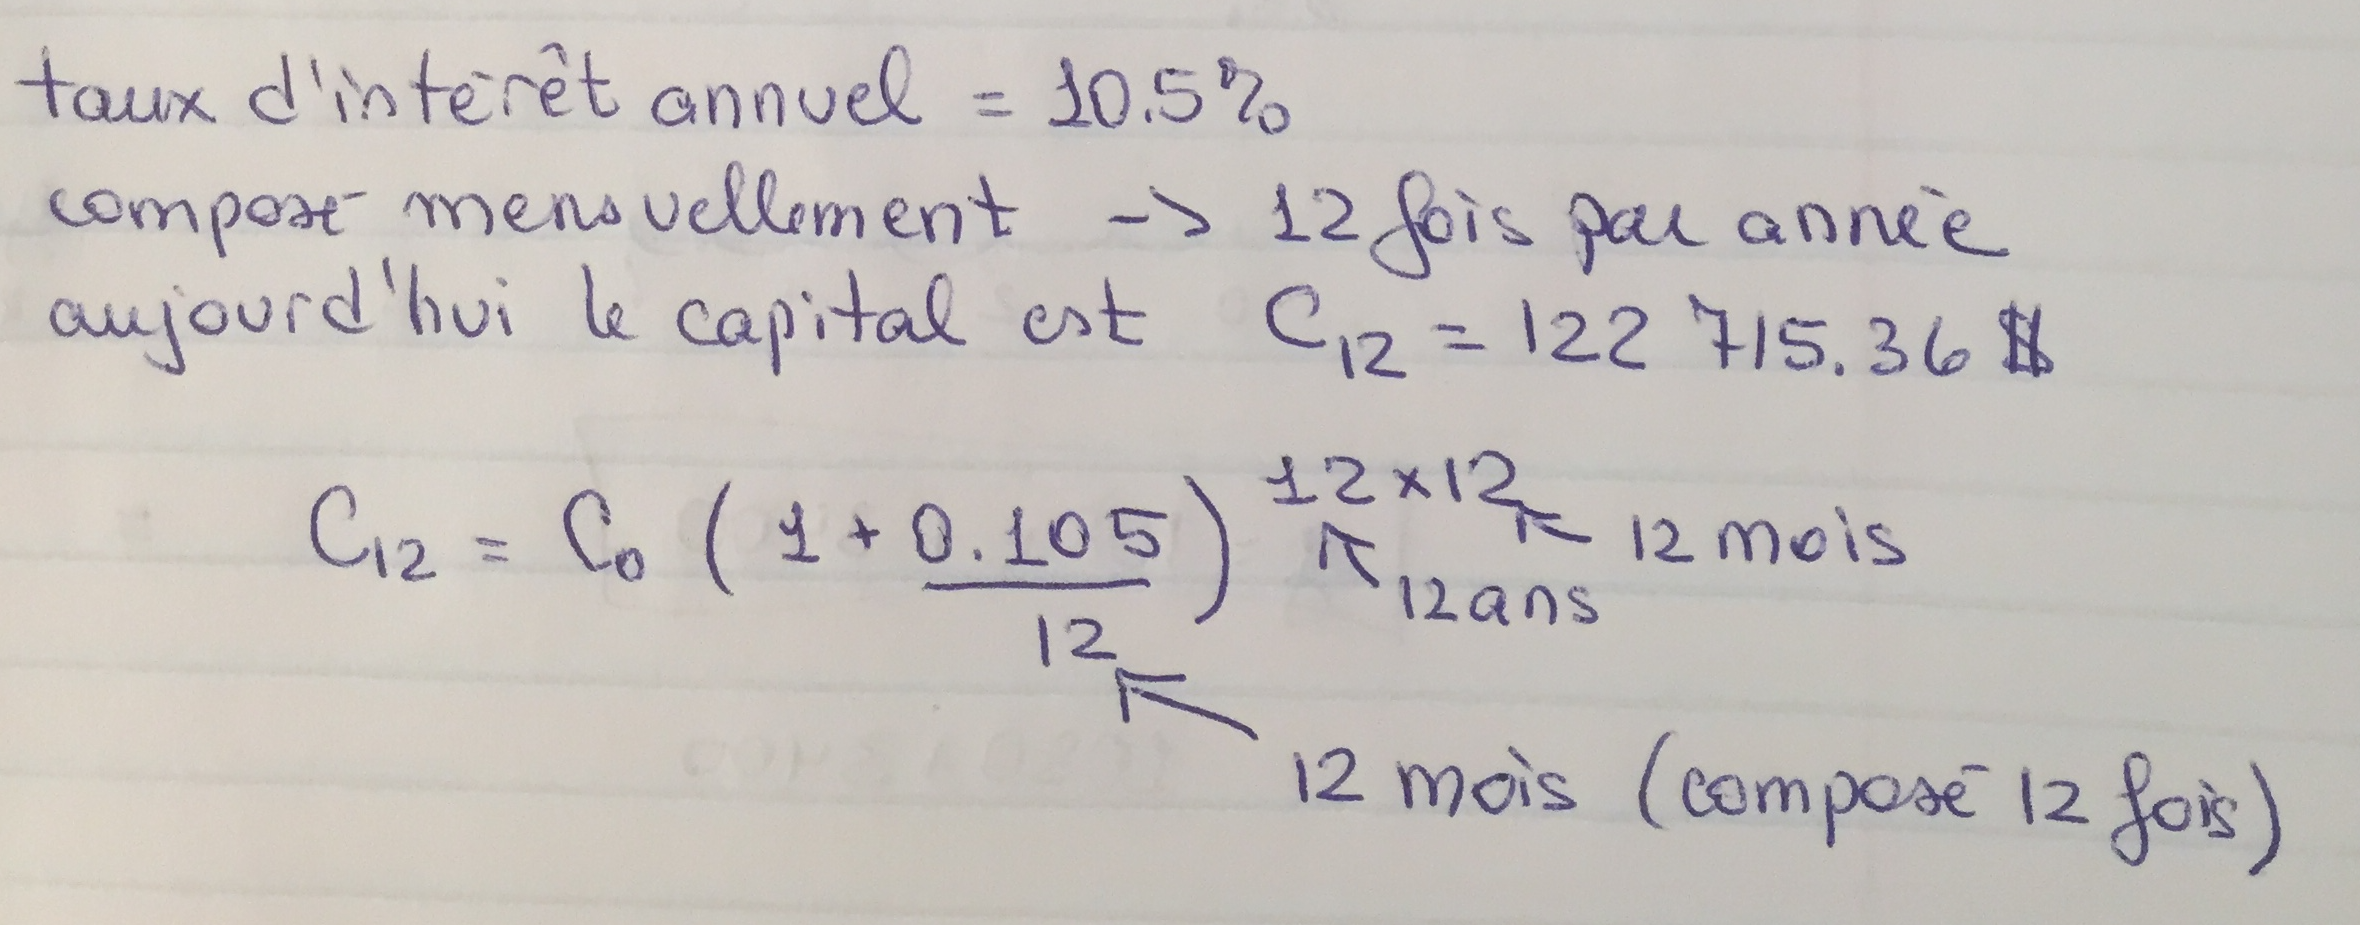 taux d'intérêt annuel = 10.5%
composé mensuellement -> 12 fois par année
aujourd'hui le capital est C₁₂ = 122 715.36 $
C₁₂ = C₀ ( 1 + 0.105 / 12 ) ^ 12 x 12
12 mois
12 ans
12 mois (composé 12 fois)